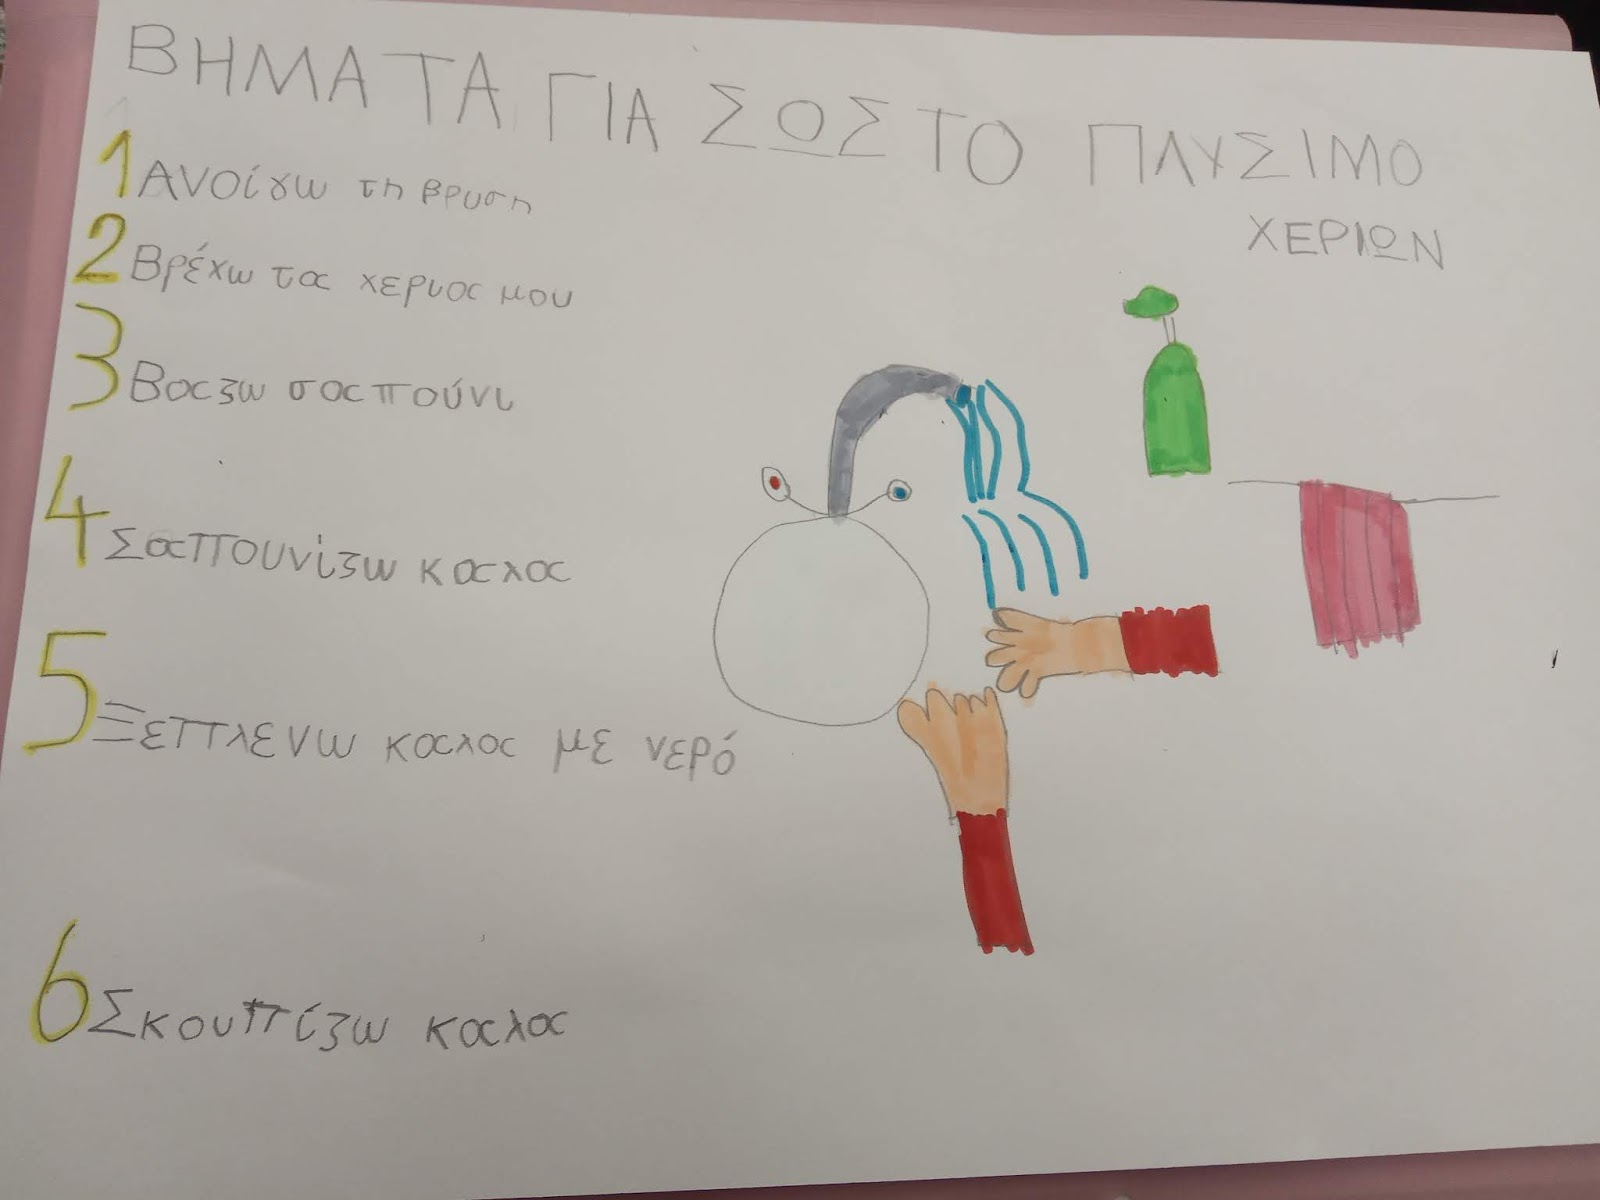 ΒΗΜΑΤΑ ΓΙΑ ΣΩΣΤΟ ΠΛΥΣΙΜΟ
ΧΕΡΙΩΝ
1 Ανοίγω τη βρυση
2 Βρέχω τα χερια μου
3 Βαζω σαπούνι
4 Σαπουνίζω καλα
5 Ξεπλενω καλα με νερό
6 Σκουπίζω καλα